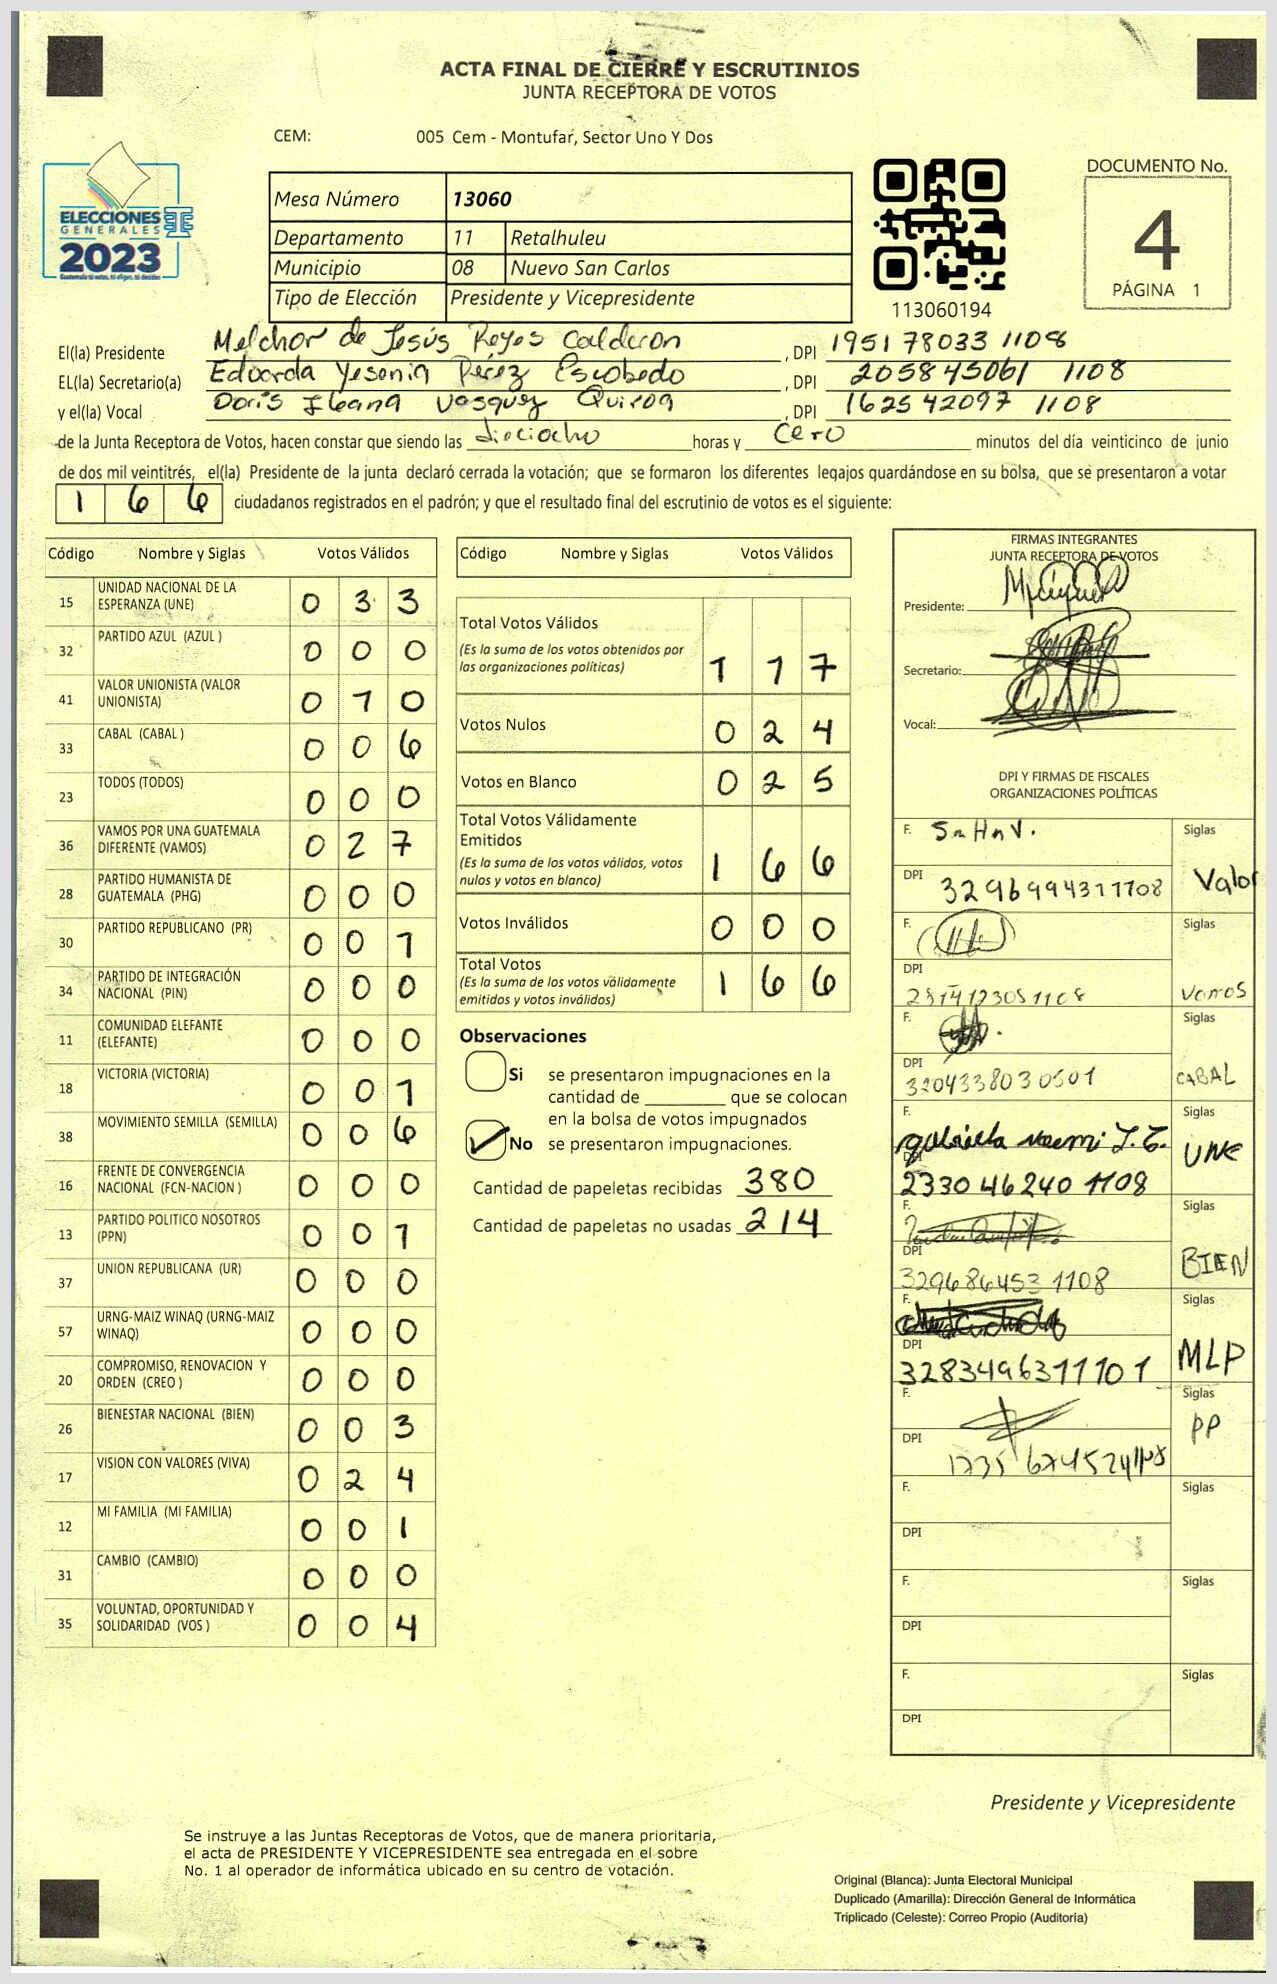 ACTA FINAL DE CIERRE Y ESCRUTINIOS
JUNTA RECEPTORA DE VOTOS
CEM: 005 Cem - Montufar, Sector Uno Y Dos
ELECCIONES
GENERALES
2023
Mesa Número 13060
Departamento 11 Retalhuleu
Municipio 08 Nuevo San Carlos
Tipo de Elección Presidente y Vicepresidente
113060194
DOCUMENTO No.
4
PÁGINA 1
El(la) Presidente Melchor de Jesús Reyes Calderon , DPI 1951 78033 1108
EL(la) Secretario(a) Edvarda Yesenia Pérez Escobedo , DPI 2058 45061 1108
y el(la) Vocal Doris Ileana Vasquez Quiroa , DPI 1625 42097 1108
de la Junta Receptora de Votos, hacen constar que siendo las dieciocho horas y cero minutos del día veinticinco de junio
de dos mil veintitrés, el(la) Presidente de la junta declaró cerrada la votación; que se formaron los diferentes legajos guardándose en su bolsa, que se presentaron a votar
1 6 6 ciudadanos registrados en el padrón; y que el resultado final del escrutinio de votos es el siguiente:
Código Nombre y Siglas Votos Válidos
15 UNIDAD NACIONAL DE LA ESPERANZA (UNE) 0 3 3
32 PARTIDO AZUL (AZUL ) 0 0 0
41 VALOR UNIONISTA (VALOR UNIONISTA) 0 1 0
33 CABAL (CABAL ) 0 0 6
23 TODOS (TODOS) 0 0 0
36 VAMOS POR UNA GUATEMALA DIFERENTE (VAMOS) 0 2 7
28 PARTIDO HUMANISTA DE GUATEMALA (PHG) 0 0 0
30 PARTIDO REPUBLICANO (PR) 0 0 1
34 PARTIDO DE INTEGRACIÓN NACIONAL (PIN) 0 0 0
11 COMUNIDAD ELEFANTE (ELEFANTE) 0 0 0
18 VICTORIA (VICTORIA) 0 0 1
38 MOVIMIENTO SEMILLA (SEMILLA) 0 0 6
16 FRENTE DE CONVERGENCIA NACIONAL (FCN-NACION ) 0 0 0
13 PARTIDO POLITICO NOSOTROS (PPN) 0 0 1
37 UNION REPUBLICANA (UR) 0 0 0
57 URNG-MAIZ WINAQ (URNG-MAIZ WINAQ) 0 0 0
20 COMPROMISO, RENOVACION Y ORDEN (CREO ) 0 0 0
26 BIENESTAR NACIONAL (BIEN) 0 0 3
17 VISION CON VALORES (VIVA) 0 2 4
12 MI FAMILIA (MI FAMILIA) 0 0 1
31 CAMBIO (CAMBIO) 0 0 0
35 VOLUNTAD, OPORTUNIDAD Y SOLIDARIDAD (VOS ) 0 0 4
Código Nombre y Siglas Votos Válidos
Total Votos Válidos
(Es la suma de los votos obtenidos por
las organizaciones políticas) 1 1 7
Votos Nulos 0 2 4
Votos en Blanco 0 2 5
Total Votos Válidamente
Emitidos
(Es la suma de los votos válidos, votos
nulos y votos en blanco) 1 6 6
Votos Inválidos 0 0 0
Total Votos
(Es la suma de los votos válidamente
emitidos y votos inválidos) 1 6 6
Observaciones
Si se presentaron impugnaciones en la
cantidad de ________ que se colocan
en la bolsa de votos impugnados
No se presentaron impugnaciones.
Cantidad de papeletas recibidas 380
Cantidad de papeletas no usadas 214
FIRMAS INTEGRANTES
JUNTA RECEPTORA DE VOTOS
Presidente:
Secretario:
Vocal:
DPI Y FIRMAS DE FISCALES
ORGANIZACIONES POLÍTICAS
F. Siglas
DPI 3296994311108 Valor
F. Siglas
DPI Vamos
F. Siglas
DPI 3204338030501 CABAL
F. Siglas
DPI 2330 46240 1108 UNE
F. Siglas
DPI 3296864531108 BIEN
F. Siglas
DPI 3283496311101 MLP
F. Siglas
DPI PP
F. Siglas
DPI
F. Siglas
DPI
F. Siglas
DPI
Presidente y Vicepresidente
Se instruye a las Juntas Receptoras de Votos, que de manera prioritaria,
el acta de PRESIDENTE Y VICEPRESIDENTE sea entregada en el sobre
No. 1 al operador de informática ubicado en su centro de votación.
Original (Blanca): Junta Electoral Municipal
Duplicado (Amarilla): Dirección General de Informática
Triplicado (Celeste): Correo Propio (Auditoría)